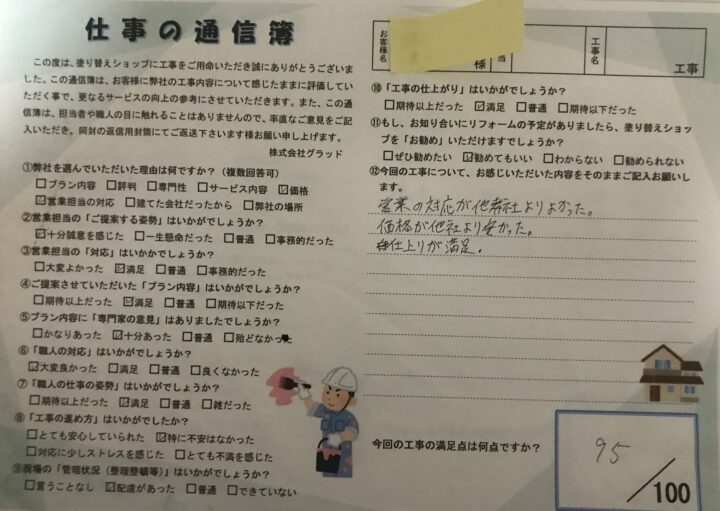 仕事の通信簿
この度は、塗り替えショップに工事をご用命いただき誠にありがとうございま
した。この通信簿は、お客様に弊社の工事内容について感じたままに評価してい
ただく事で、更なるサービスの向上の参考にさせていただきます。また、この通
信簿は、担当者や職人の目に触れることはありませんので、率直なご意見をご記
入いただき、同封の返信用封筒にてご返送下さいます様お願い申し上げます。
株式会社グラッド
①弊社を選んでいただいた理由は何ですか？（複数回答可）
□プラン内容 □評判 □専門性 □サービス内容 ☑価格
☑営業担当の対応 □建てた会社だったから □弊社の場所
②営業担当の「ご提案する姿勢」はいかがでしょうか？
☑十分誠意を感じた □一生懸命だった □普通 □事務的だった
③営業担当の「対応」はいかかでしょうか？
□大変よかった ☑満足 □普通 □事務的だった
④ご提案させていただいた「プラン内容」はいかがでしょうか？
□期待以上だった ☑満足 □普通 □期待以下だった
⑤プラン内容に「専門家の意見」はありましたでしょうか？
□かなりあった ☑十分あった □普通 □殆どなかった
⑥「職人の対応」はいかがでしょうか？
☑大変良かった □満足 □普通 □良くなかった
⑦「職人の仕事の姿勢」はいかがでしょうか？
□期待以上だった ☑満足 □普通 □雑だった
⑧「工事の進め方」はいかがでしたか？
□とても安心していられた ☑特に不安はなかった
□対応に少しストレスを感じた □とても不満を感じた
⑨現場の「管理状況（整理整頓等）」はいかがでしょうか？
□言うことなし ☑配慮があった □普通 □できていない
お客様名 様 当 工事名 工事
⑩「工事の仕上がり」はいかがでしょうか？
□期待以上だった ☑満足 □普通 □期待以下だった
⑪もし、お知り合いにリフォームの予定がありましたら、塗り替えショッ
プを「お勧め」いただけますでしょうか？
□ぜひ勧めたい ☑勧めてもいい □わからない □勧められない
⑫今回の工事について、お感じいただいた内容をそのままご記入お願いし
ます。
営業の対応が他社よりよかった。
価格が他社より安かった。
仕上りが満足。
今回の工事の満足点は何点ですか？
95
/100